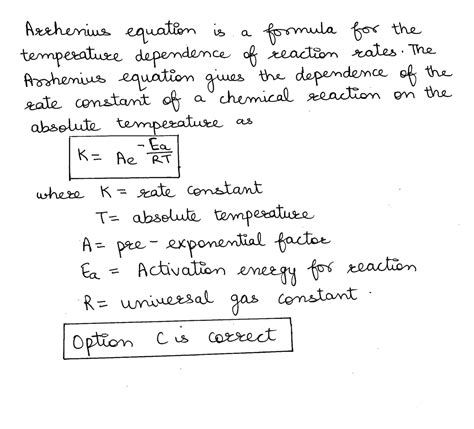 Arrhenius equation is a formula for the
temperature dependence of reaction rates. The
Arrhenius equation gives the dependence of the
rate constant of a chemical reaction on the
absolute temperature as
K = Ae^(-Ea/RT)
where K = rate constant
T = absolute temperature
A = pre-exponential factor
Ea = Activation energy for reaction
R = universal gas constant.
Option C is correct